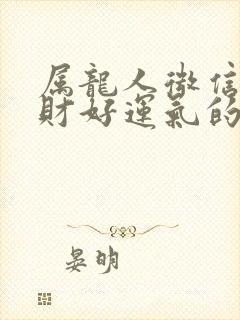 属龍人微信
財好運氣的
晏明